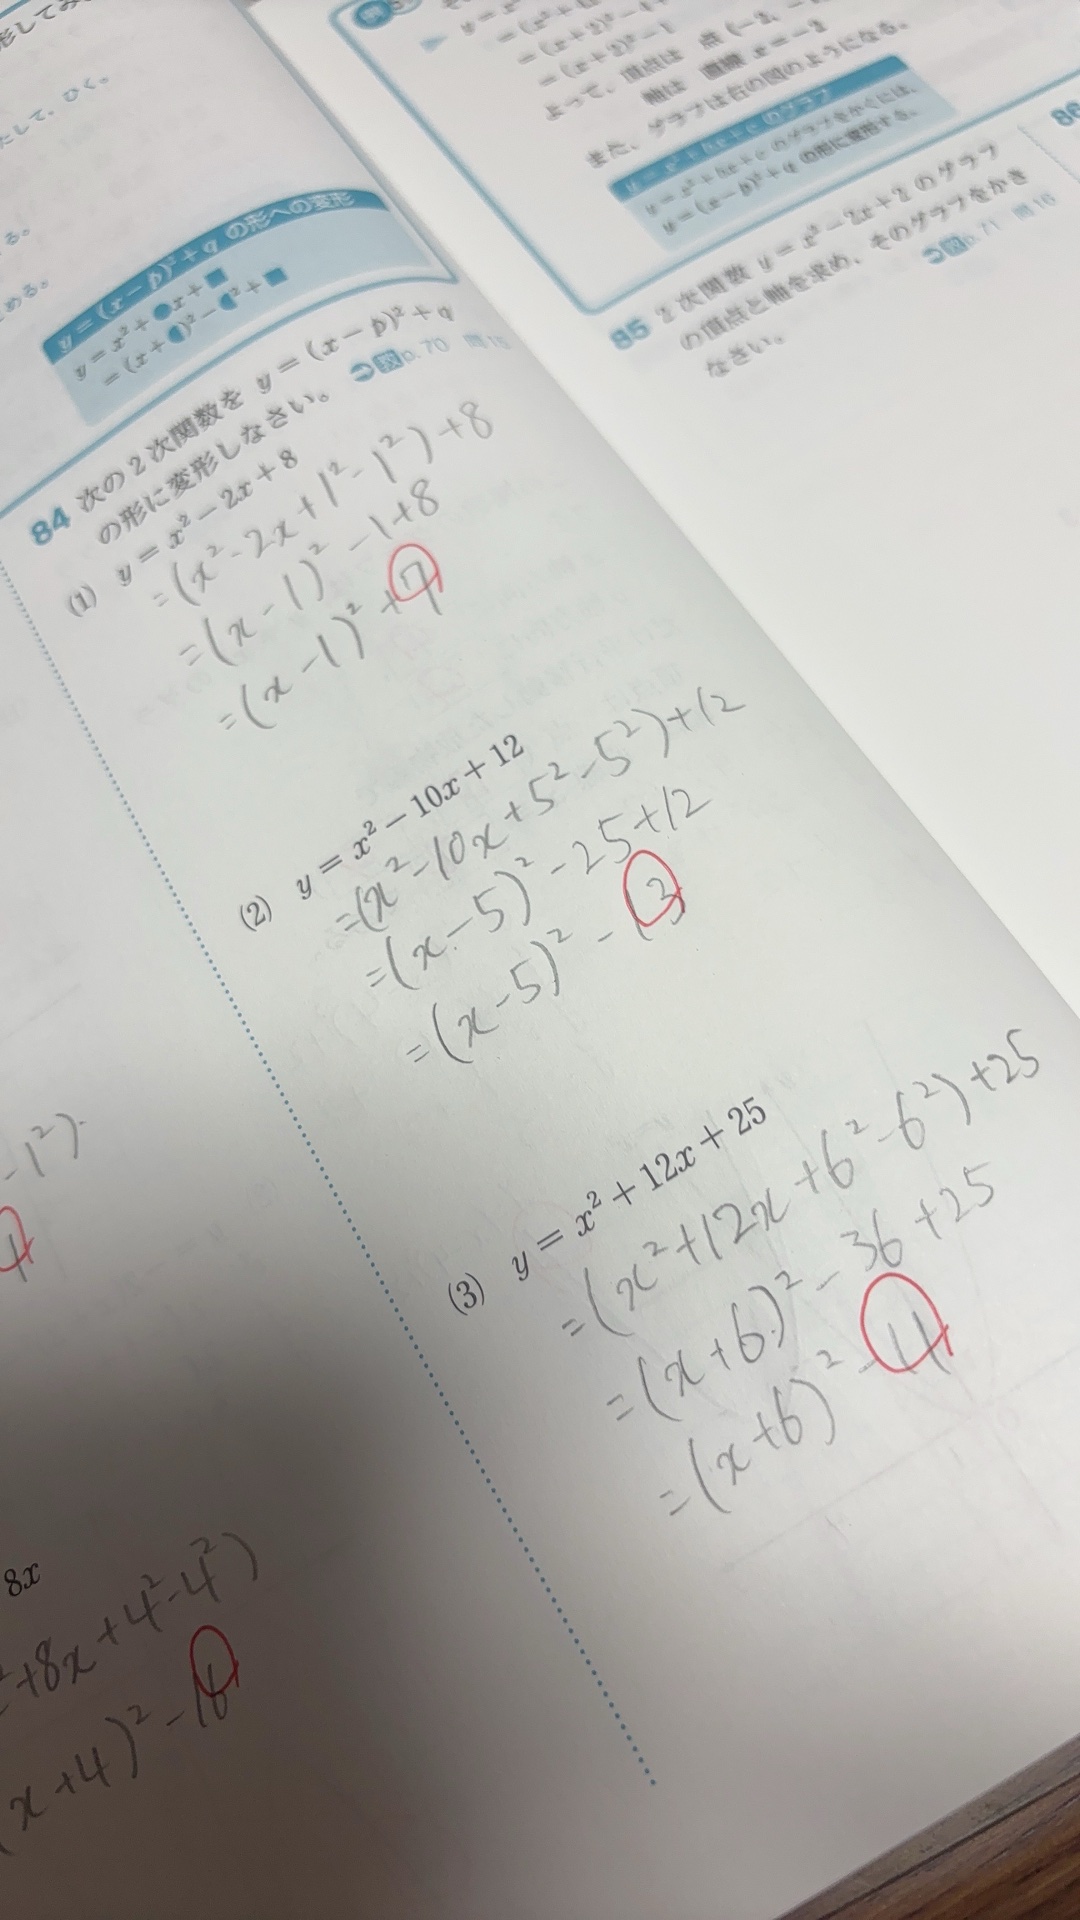 たして，ひく。
y = (x − p)² + q の形への変形
y = x² + ●x + ■
= (x + ◖)² − ◖² + ■
84 次の2次関数を y = (x − p)² + q
の形に変形しなさい。
教p.70 問15
(1) y = x² − 2x + 8
= (x² - 2x + 1² - 1²) + 8
= (x - 1)² - 1 + 8
= (x - 1)² + 7
(2) y = x² − 10x + 12
= (x² - 10x + 5² - 5²) + 12
= (x - 5)² - 25 + 12
= (x - 5)² - 13
(3) y = x² + 12x + 25
= (x² + 12x + 6² - 6²) + 25
= (x + 6)² - 36 + 25
= (x + 6)² - 11
- 1²)
4
8x
² + 8x + 4² - 4²)
x + 4)² - 16
= (x+2)² − 1
よって，頂点は 点 (−2, −
軸は 直線 x = −2
また，グラフは右の図のようになる。
y = x² + bx + c のグラフ
y = x² + bx + c のグラフをかくには，
y = (x − p)² + q の形に変形する。
85 2次関数 y = x² − 2x + 2 のグラフ
の頂点と軸を求め，そのグラフをかき
なさい。
教p.71 問16
86